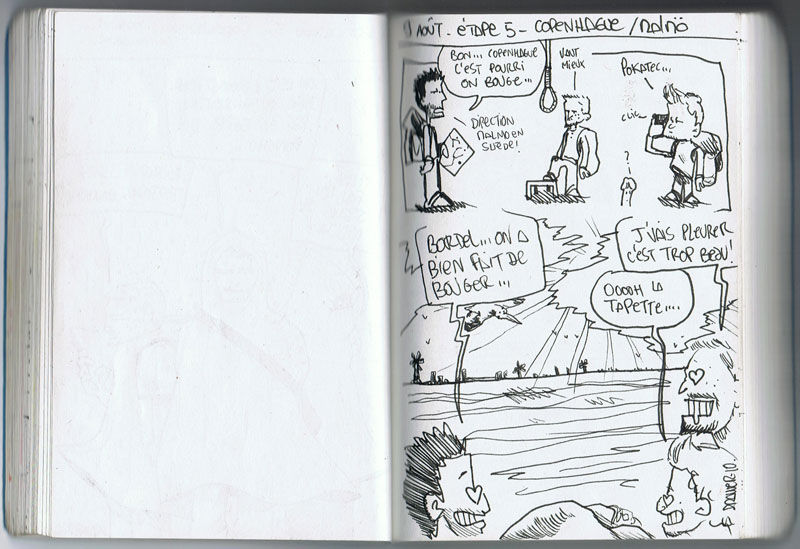 11 AOÛT - ÉTAPE 5 - COPENHAGUE / MALMÖ
BON... COPENHAGUE
C'EST POURRI
ON BOUGE...
DIRECTION
MALMÖ EN
SUÈDE!
VAUT
MIEUX
POKATEC...
CLIC
?
BORDEL... ON A
BIEN FAIT DE
BOUGER...
J'VAIS PLEURER
C'EST TROP BEAU!
OOOOH LA
TAPETTE....